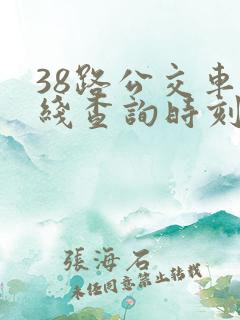 38路公交車
綫查詢時刻
張海石
未经同意禁止转载